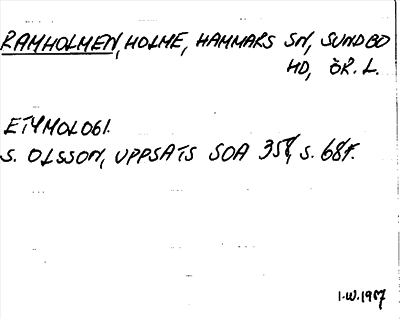 RAMHOLMEN, HOLME, HAMMARS SN, SUNDBO
HD, ÖR. L.
ETYMOLOGI.
S. OLSSON, UPPSATS SOA 357, S. 68F.
I.W. 1957